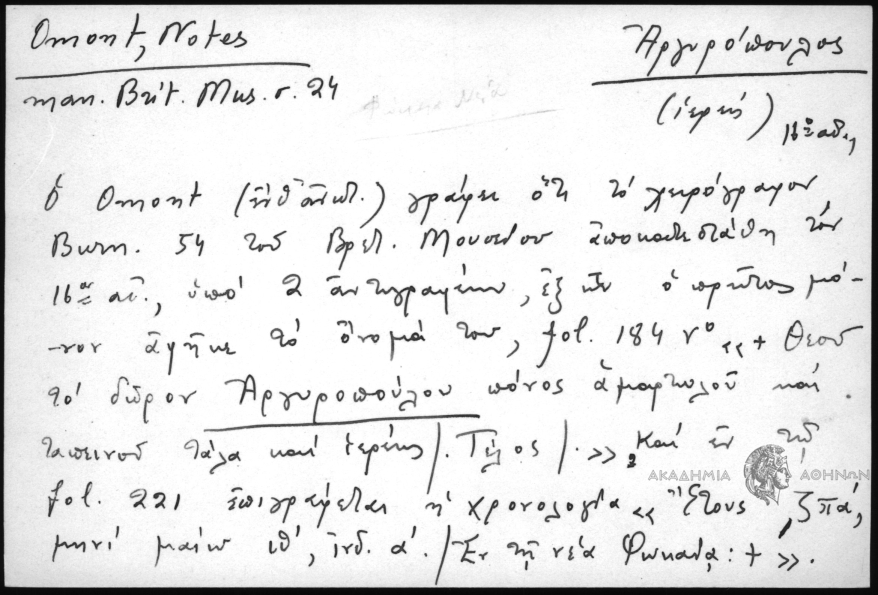 Omont, Notes
man. Brit. Mus. σ. 24
Ἀργυρόπουλος
(ἱερεύς)
16ος αἰ.
Φώκαια Νέα
ὁ Omont (ἔνθ' ἀνωτ.) γράφει ὅτι τὸ χειρόγραφον
Burn. 54 τοῦ Βρετ. Μουσείου ἀποκατεστάθη τὸν
16ον αἰ., ὑπὸ 2 ἀντιγραφέων, ἐξ ὧν ὁ πρῶτος μό-
-νον ἀφῆκε τὸ ὄνομά του, fol. 184 vº «+ Θεοῦ
τὸ δῶρον Ἀργυροπούλου πόνος ἁμαρτωλοῦ καὶ
ταπεινοῦ τάλα καὶ ἱερέως /. Τέλος /. » Καὶ ἐν τῷ
fol. 221 ἐπιγράφεται ἡ χρονολογία « Ἔτους ,ζπά,
μηνὶ μαίω ιθ', ἰνδ. α'. / Ἐν τῇ νέα Φωκαία : + ».
ΑΚΑΔΗΜΙΑ ΑΘΗΝΩΝ